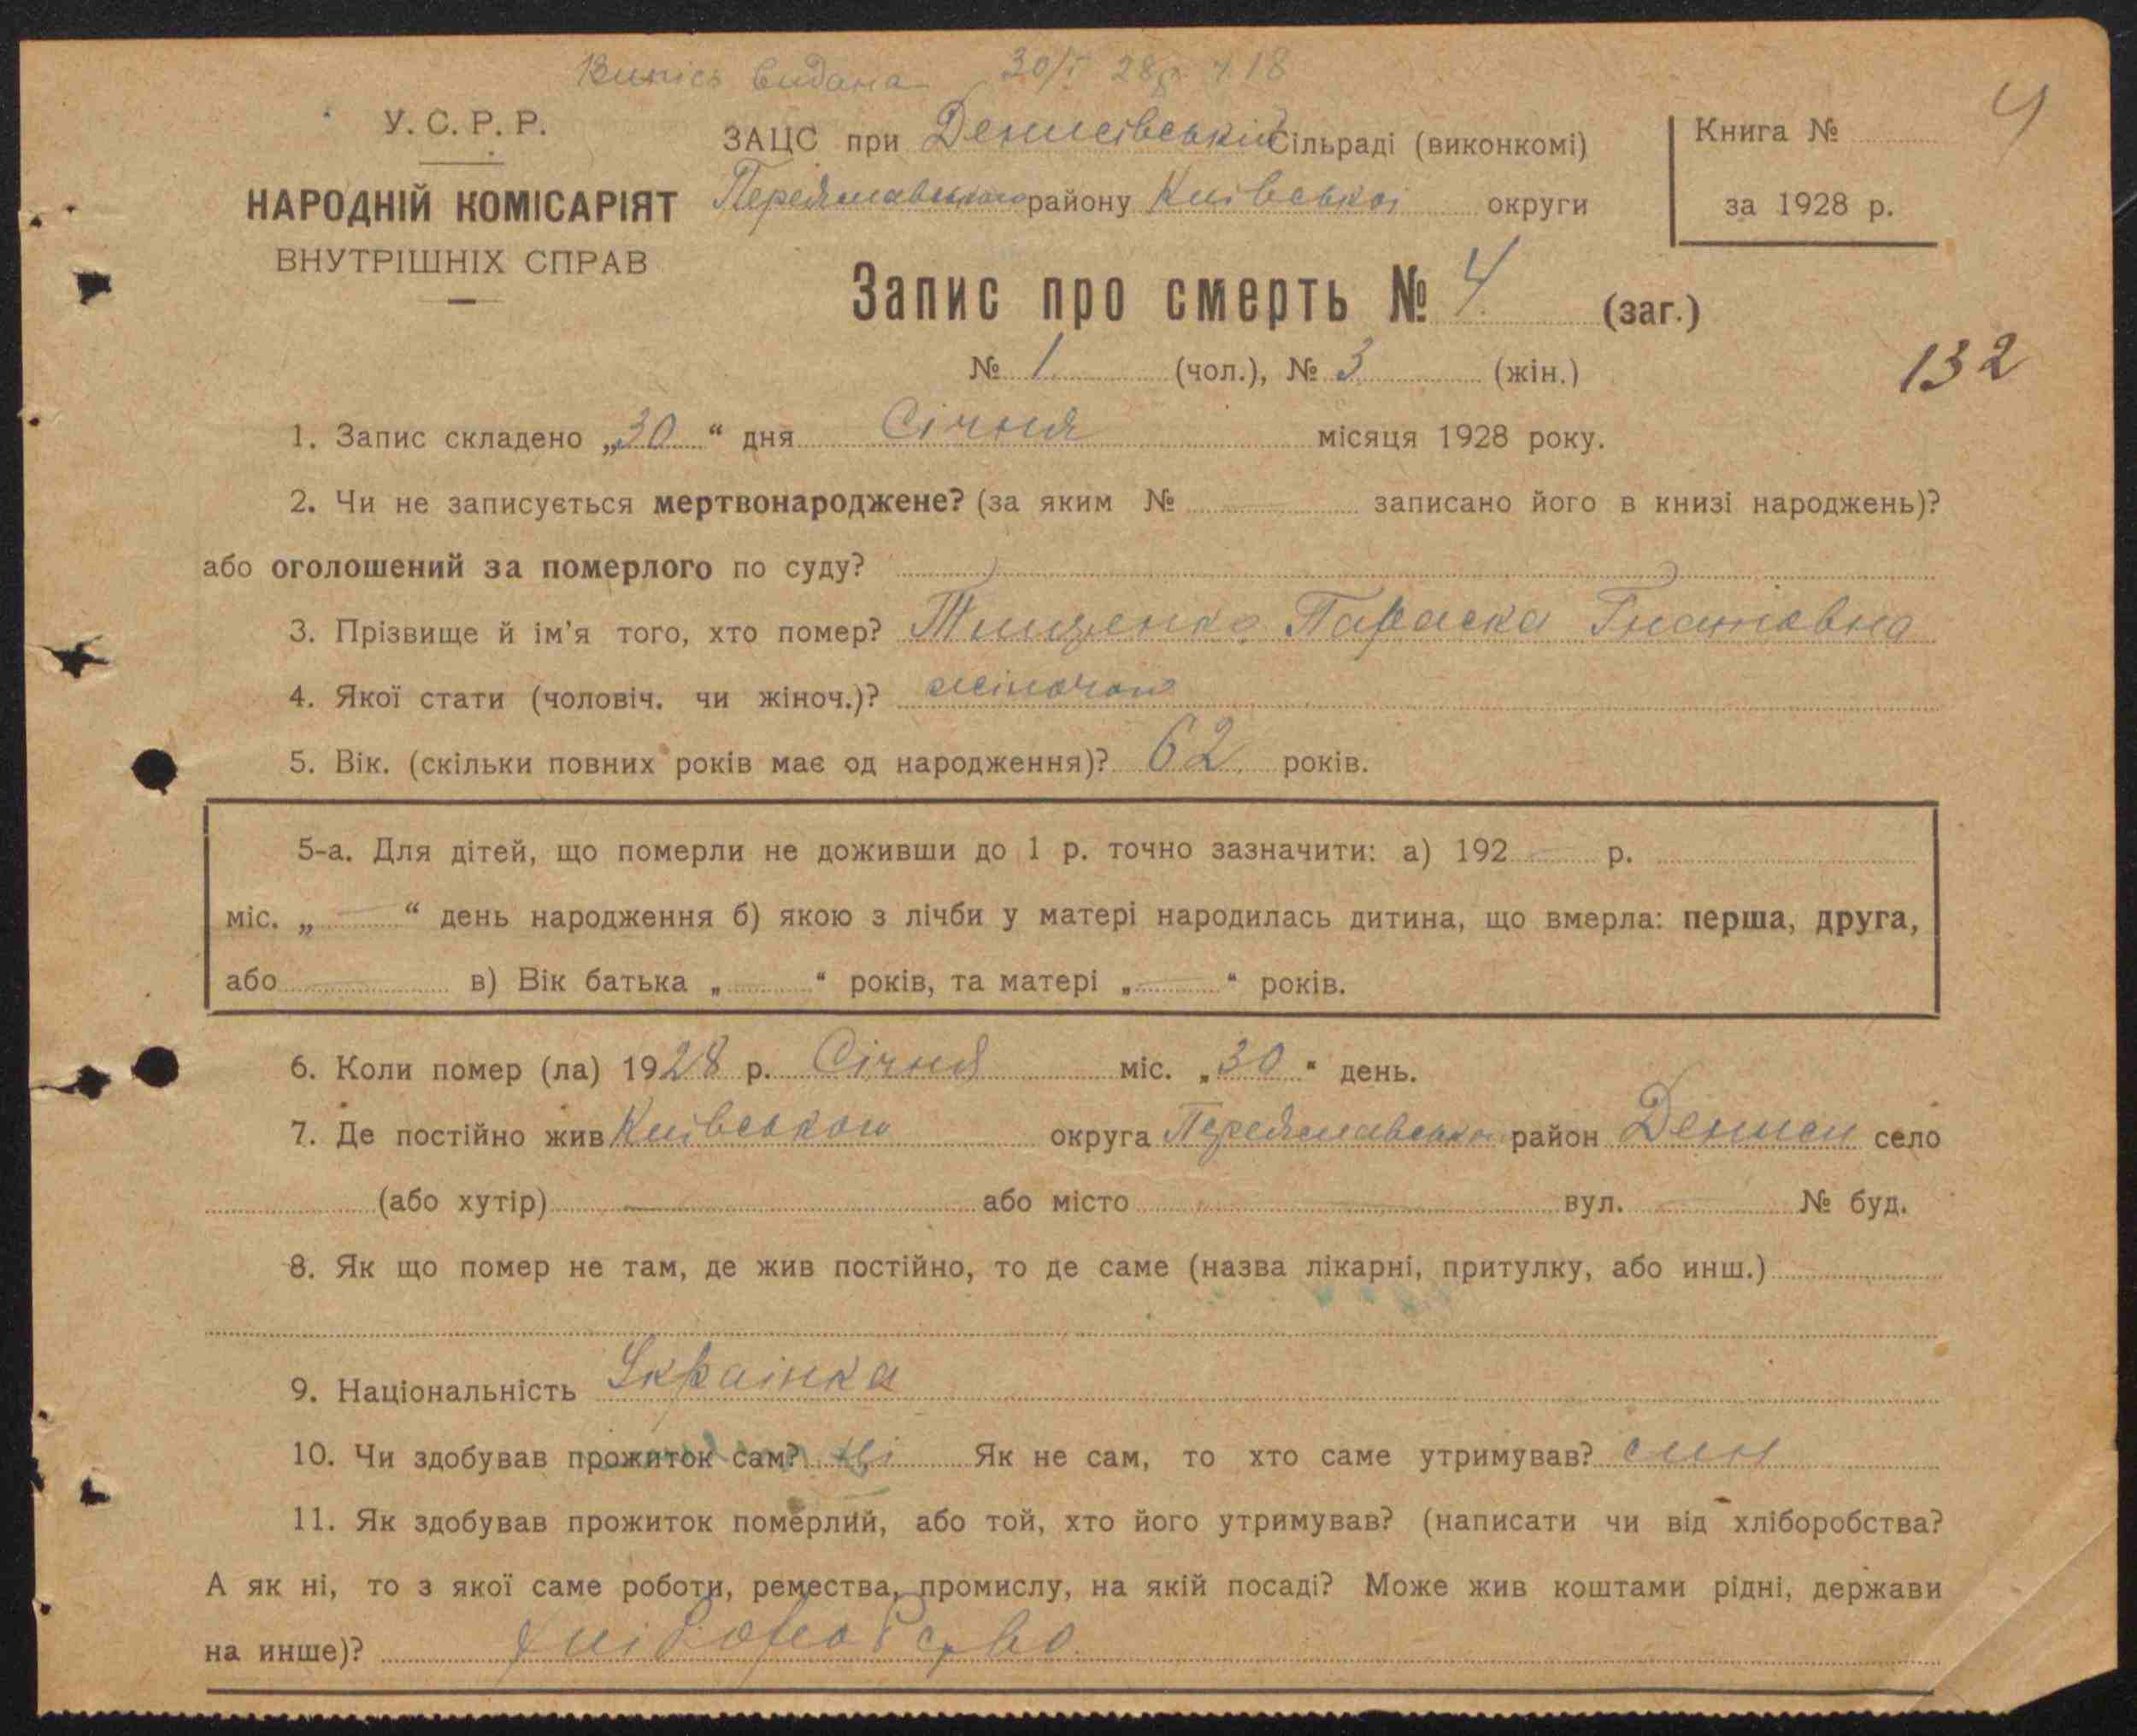 Випись видана 30/I 28р. ч. 18
4
У. С. Р. Р.
НАРОДНІЙ КОМІСАРІЯТ
ВНУТРІШНІХ СПРАВ
ЗАЦС при Денисівській Сільраді (виконкомі)
Переяславського району Київської округи
Книга №
за 1928 р.
Запис про смерть № 4 (заг.)
№ 1 (чол.), № 3 (жін.)
132
1. Запис складено „30“ дня Січня місяця 1928 року.
2. Чи не записується мертвонароджене? (за яким № — записано його в книзі народжень)?
або оголошений за померлого по суду?
3. Прізвище й ім'я того, хто помер? Тищенко Параска Гнатовна
4. Якої стати (чоловіч. чи жіноч.)? жіночої
5. Вік. (скільки повних років має од народження)? 62 років.
5-а. Для дітей, що померли не доживши до 1 р. точно зазначити: а) 192 — р.
міс. „ — “ день народження б) якою з лічби у матері народилась дитина, що вмерла: перша, друга,
або — в) Вік батька „ — “ років, та матері „ — “ років.
6. Коли помер (ла) 1928 р. Січня міс. „30“ день.
7. Де постійно жив Київською округа Переяславсько район Дениси село
(або хутір) — або місто — вул. — № буд.
8. Як що помер не там, де жив постійно, то де саме (назва лікарні, притулку, або инш.)
9. Національність Українка
10. Чи здобував прожиток сам? Ні Як не сам, то хто саме утримував? син
11. Як здобував прожиток померлий, або той, хто його утримував? (написати чи від хліборобства?
А як ні, то з якої саме роботи, ремества, промислу, на якій посаді? Може жив коштами рідні, держави
на инше)? Хліборобство